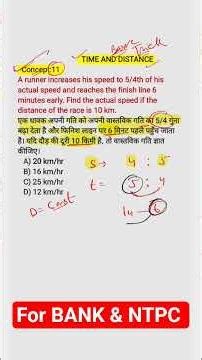 Base Trick
TIME AND DISTANCE
Concept:11
A runner increases his speed to 5/4th of his
actual speed and reaches the finish line 6
minutes early. Find the actual speed if the
distance of the race is 10 km.
एक धावक अपनी गति को अपनी वास्तविक गति का 5/4 गुना
बढ़ा देता है और फिनिश लाइन पर 6 मिनट पहले पहुँच जाता
है। यदि दौड़ की दूरी 10 किमी है, तो वास्तविक गति ज्ञात
कीजिए।
A) 20 km/hr
B) 16 km/hr
C) 25 km/hr
D) 12 km/hr
S → 4 : 5
t = 5 : 4
D = Const
6
For BANK & NTPC